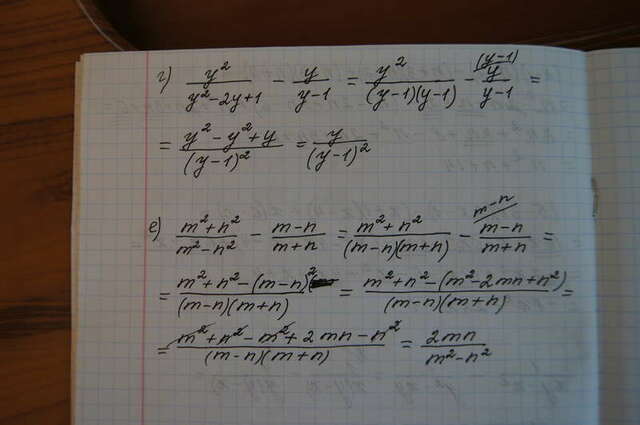 г) y²/(y²-2y+1) - y/(y-1) = y²/((y-1)(y-1)) - (y-1) y/(y-1) =
= (y²-y²+y)/(y-1)² = y/(y-1)²
е) (m²+n²)/(m²-n²) - (m-n)/(m+n) = (m²+n²)/((m-n)(m+n)) - m-n (m-n)/(m+n) =
= (m²+n²-(m-n)²)/((m-n)(m+n)) = (m²+n²-(m²-2mn+n²))/((m-n)(m+n)) =
= (m²+n²-m²+2mn-n²)/((m-n)(m+n)) = 2mn/(m²-n²)